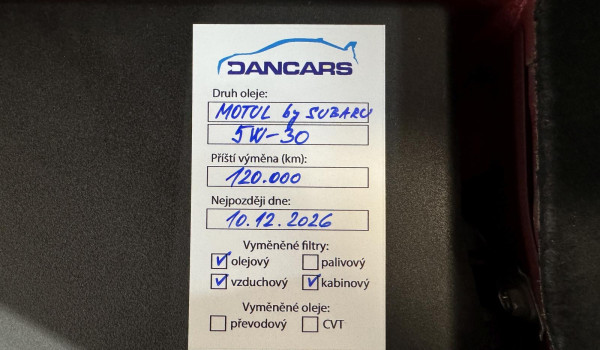 DANCARS
Druh oleje:
MOTUL by SUBARU
5W-30
Příští výměna (km):
120.000
Nejpozději dne:
10.12.2026
Vyměněné filtry:
olejový palivový
vzduchový kabinový
Vyměněné oleje:
převodový CVT